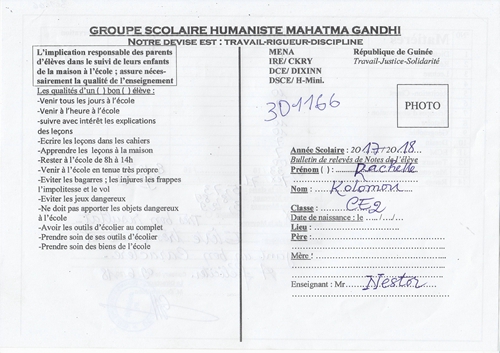 GROUPE SCOLAIRE HUMANISTE MAHATMA GANDHI
NOTRE DEVISE EST : TRAVAIL-RIGUEUR-DISCIPLINE
L'implication responsable des parents
d'élèves dans le suivi de leurs enfants
de la maison à l'école ; assure néces-
sairement la qualité de l'enseignement
Les qualités d'un ( ) bon ( ) élève :
-Venir tous les jours à l'école
-Venir à l'heure à l'école
-suivre avec intérêt les explications
des leçons
-Ecrire les leçons dans les cahiers
-Apprendre les leçons à la maison
-Rester à l'école de 8h à 14h
-Venir à l'école en tenue très propre
-Eviter les bagarres ; les injures les frappes
l'impolitesse et le vol
-Eviter les jeux dangereux
-Ne doit pas apporter les objets dangereux
à l'école
-Avoir les outils d'écolier au complet
-Prendre soin de ses outils d'écolier
-Prendre soin des biens de l'école
MENA République de Guinée
IRE/ CKRY Travail-Justice-Solidarité
DCE/ DIXINN
DSCE/ H-Mini.
301166
PHOTO
Année Scolaire : 2017/2018
Bulletin de relevés de Notes de l'élève
Prénom ( ) : Rachelle
Nom : Kolomou
Classe : CE2
Date de naissance : le ..../..../....
Lieu :
Père :
Mère :
Enseignant : Mr Nestor